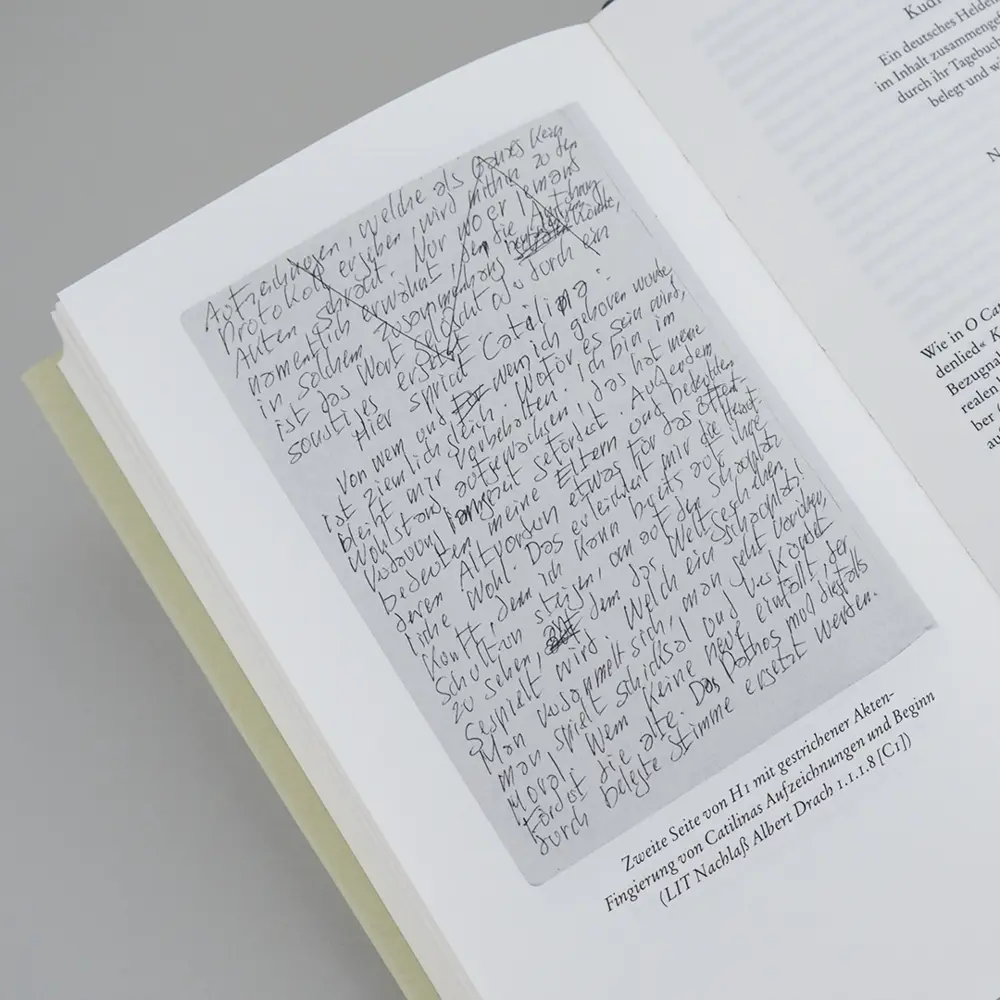 Aufzeichnungen, welche als Ganzes kein
Protokoll ergeben, wird mithin zu den
Akten schreibt. Nur wo er jemans
namentlich erwähnt, den die
in solchem Zusammenhang könnte,
ist das Wort gelöscht oder durch ein
sonstiges ersetzt
Hier sprict Catilina:
Von wem und wem ich geboren wurde,
ist ziemlich gleich. Wofür es sein wird,
bleibt mir vorbehalten. ich bin im
Wohlstand aufgewachsen, das hat meine
gefördert. Außerdem
bedeuten meine Eltern und bedeuteten
deren Altvordern etwas für das öffent-
liche Wohl. Das erleichtert mir die
kunft, denn ich kann bereits auf ihre
Schultern steigen, um auf den Schauplatz
zu sehen, auf dem das Weltgeschehen
gespielt wird. Welch ein Schauplatz!
Man versammelt sich, man geht vorüber,
man spielt Schicksal und verkündet
Moral. Wem keine neue einfällt, der
fördert die alte. Das Pathos muß diesfalls
durch belegte Stimme ersetzt werden.
Zweite Seite von H1 mit gestrichener Akten-
Fingierung von Catilinas Aufzeichnungen und Beginn
(LIT Nachlaß Albert Drach 1.1.1.8 [C1])
Ein deutsches Helden
im Inhalt zusammenge
durch ihr Tagebuch
belegt und wi
N
Wie in O Cat
denlied« K
Bezugna
realen
ber
au